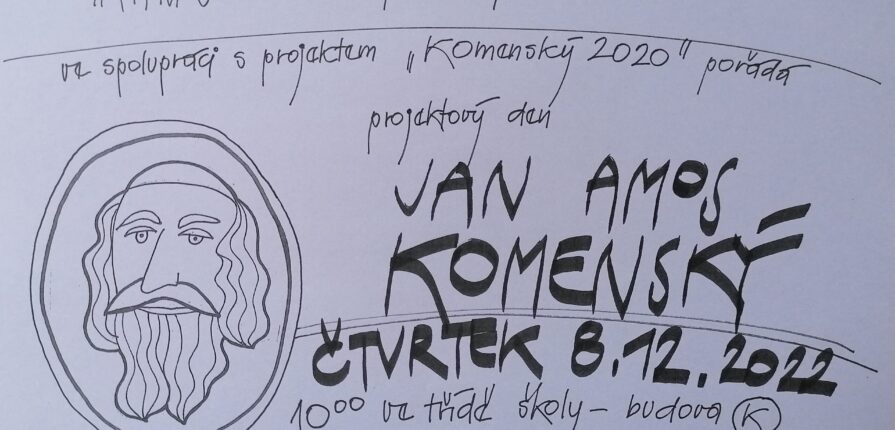 ve spolupráci s projektem „Komenský 2020" pořádá
projektový den
JAN AMOS
KOMENSKÝ
ČTVRTEK 8.12.2022
10⁰⁰ ve třídě školy – budova K